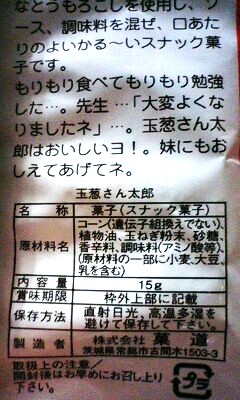 なとうもろこしを使用し、ソ
ース、調味料を混ぜ、口あた
りのよいかる〜いスナック菓
子です。
もりもり食べてもりもり勉強
した…。先生…「大変よくな
りましたネ」…。玉葱さん太
郎はおいしいヨ！。妹にもお
しえてあげてネ。
玉葱さん太郎
名称 菓子(スナック菓子)
原材料名 コーン(遺伝子組換えでない)、
植物油、玉ねぎ粉末、砂糖、
香辛料、調味料(アミノ酸等)
(原材料の一部に小麦、大豆、
乳を含む)
内容量 15g
賞味期限 枠外上部に記載
保存方法 直射日光、高温多湿を
避けて保存して下さい。
製造者 株式会社 菓道
茨城県常総市古間木1503-3
取扱上の注意／
開封後はお早めにお召し上り
下さい。
プラ